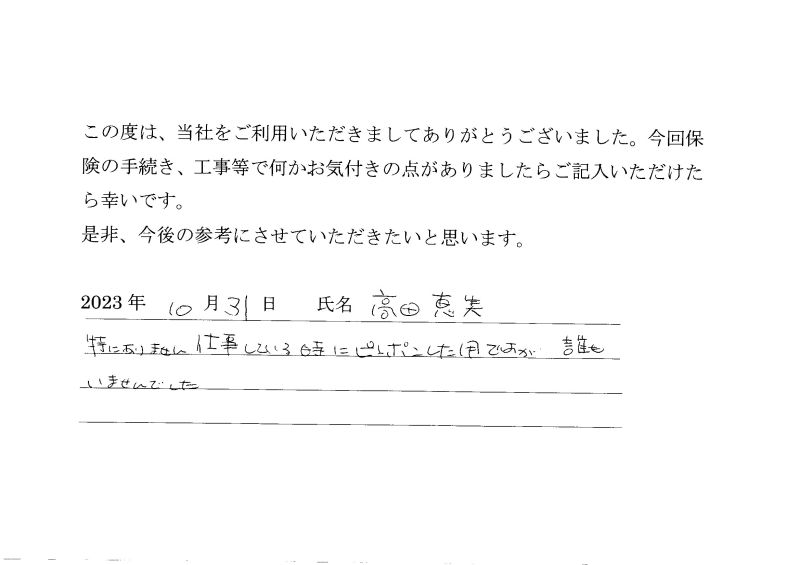 この度は、当社をご利用いただきましてありがとうございました。今回保
険の手続き、工事等で何かお気付きの点がありましたらご記入いただけた
ら幸いです。
是非、今後の参考にさせていただきたいと思います。
2023 年 10 月 31 日 氏名 高田 恵実
特にありません 仕事している時にピンポンした様ですが 誰も
いませんでした